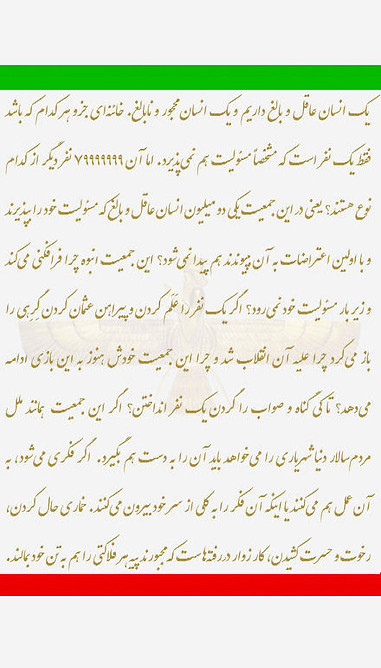 یک انسان عاقل و بالغ داریم و یک انسان مجور و نابالغ. خامنه‌ای جزو هر کدام که باشد
فقط یک نفر است که مشخصاً مسئولیت هم نمی‌پذیرد. اما آن ۷۹۹۹۹۹۹۹ نفر دیگر از کدام
نوع هستند؟ یعنی در این جمعیت یکی دو میلیون انسان عاقل و بالغ که مسئولیت خود را بپذیرند
و با اولین اعتراضات به آن پیوندند هم پیدا نمی‌شود؟ این جمعیت انبوه چرا فرافکنی می‌کند
و زیر بار مسئولیت خود نمی‌رود؟ اگر یک نفر را عَلَم کردن و پیراهن عثمان کردن گِرِهی را
باز می‌کرد چرا علیه آن انقلاب شد و چرا این جمعیت خودش هنوز به این بازی ادامه
می‌دهد؟ تا کی گناه و صواب را گردن یک نفر انداختن؟ اگر این جمعیت همانند ملل
مردم‌سالار دنیا شهریاری را می‌خواهد باید آن را به دست هم بگیرد. اگر فکری می‌شود، به
آن عمل هم می‌کنند یا اینکه آن فکر را به کلی از سر خود بیرون می‌کنند. خماری حال کردن،
رخوت و حسرت کشیدن، کار زوار دررفته‌هاست که مجبورند پیه هر فلاکتی را هم به تن خود بمالند.